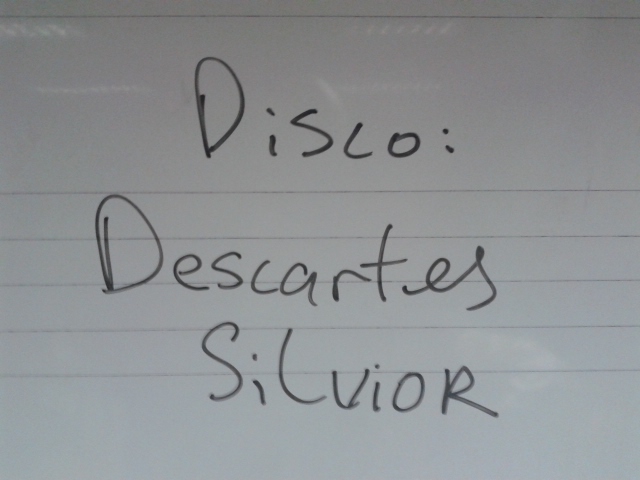 Disco:
Descartes
Silvior